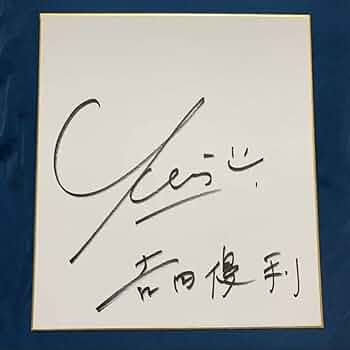 Yuri
吉田優利